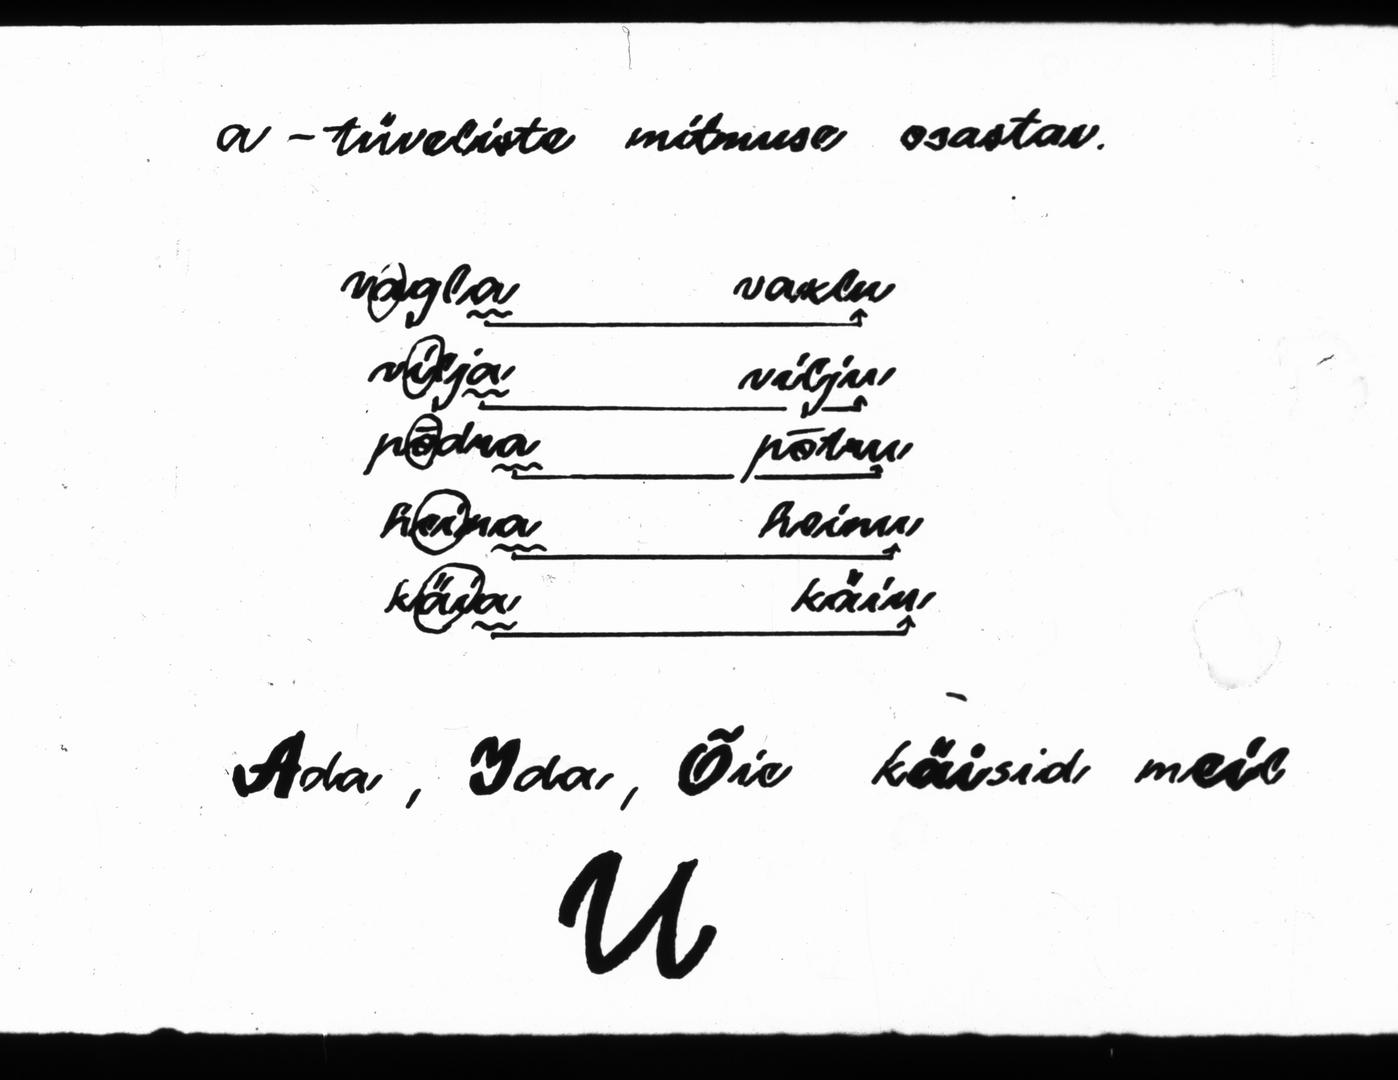 a - tüveliste mitmuse osastav.
vagla vaklu
vilja vilju
põdra põtru
heina heinu
käia käiu
Ada, Ida, Õie käisid meil
U